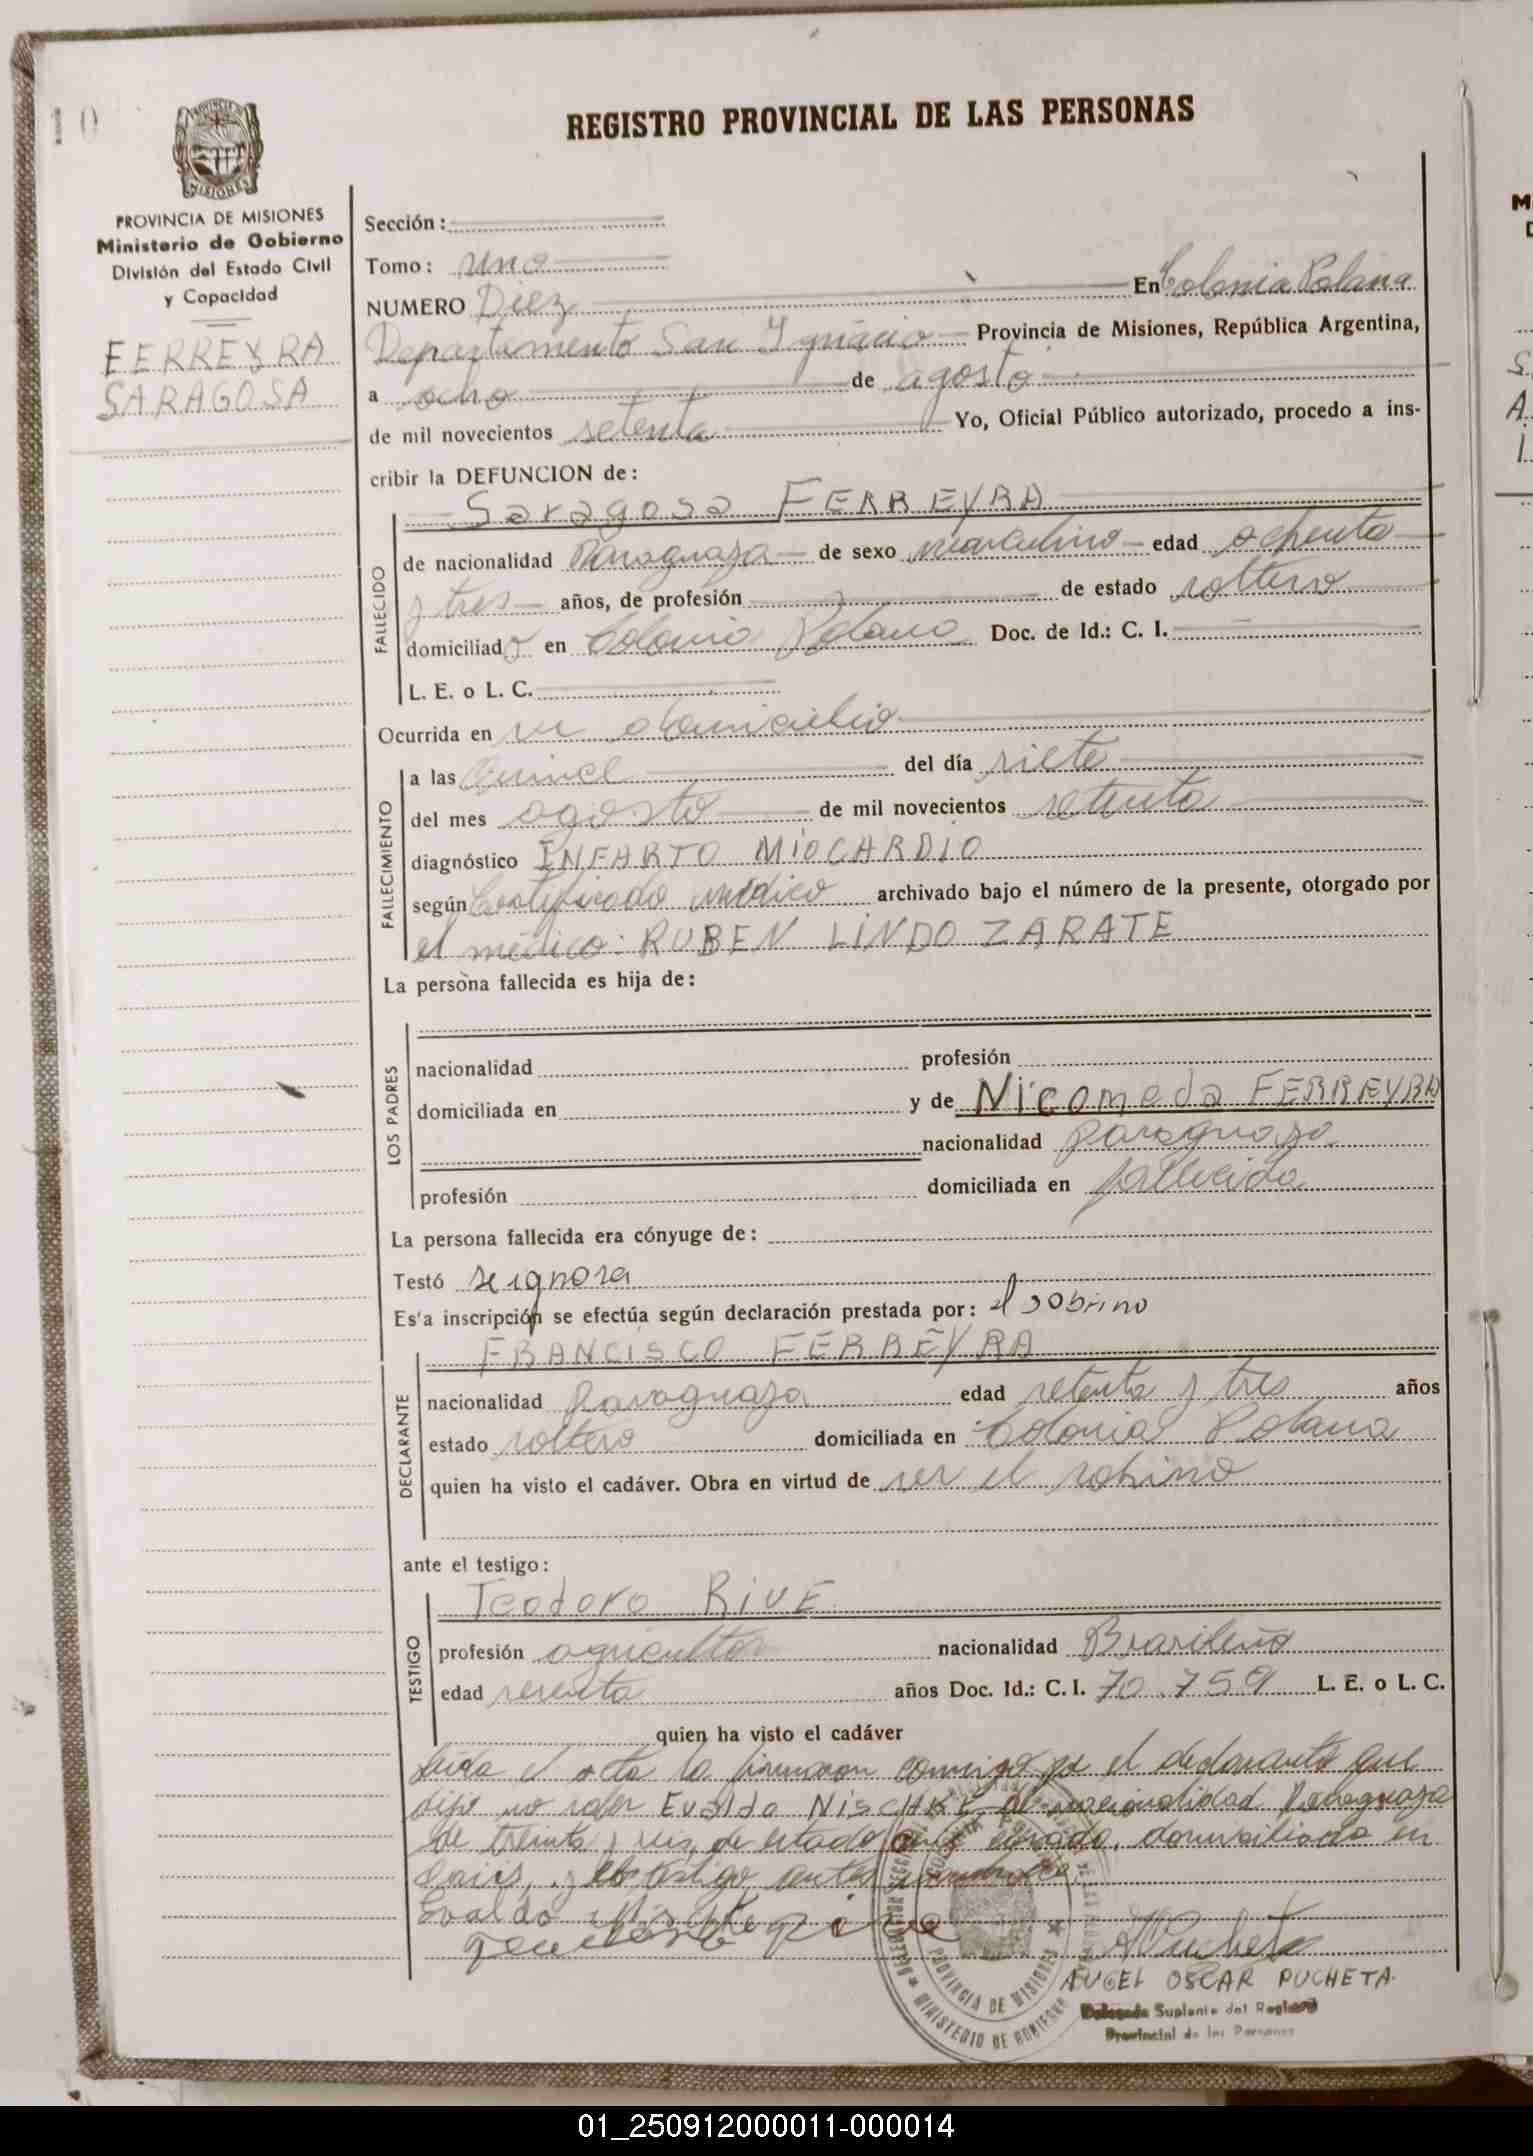 10
REGISTRO PROVINCIAL DE LAS PERSONAS
PROVINCIA DE MISIONES
Ministerio de Gobierno
División del Estado Civil
y Capacidad
FERREYRA
SARAGOSA
Sección:
Tomo: uno
NUMERO Diez En Colonia Polana
Departamento San Ignacio Provincia de Misiones, República Argentina,
a ocho de agosto
de mil novecientos setenta Yo, Oficial Público autorizado, procedo a ins-
cribir la DEFUNCION de:
Saragosa FERREYRA
FALLECIDO
de nacionalidad Paraguaya de sexo masculino edad ochenta
y tres años, de profesión de estado soltero
domiciliado en Colonia Polana Doc. de Id.: C. I.
L. E. o L. C.
Ocurrida en su domicilio
FALLECIMIENTO
a las quince del día siete
del mes agosto de mil novecientos setenta
diagnóstico INFARTO MIOCARDIO
según Certificado médico archivado bajo el número de la presente, otorgado por
el médico: RUBEN LINDO ZARATE
La persona fallecida es hija de:
LOS PADRES
nacionalidad profesión
domiciliada en y de Nicomeda FERREYRA
nacionalidad paraguaya
profesión domiciliada en fallecida
La persona fallecida era cónyuge de:
Testó se ignora
Es'a inscripción se efectúa según declaración prestada por: el sobrino
FRANCISCO FERREYRA
DECLARANTE
nacionalidad Paraguaya edad setenta y tres años
estado soltero domiciliada en Colonia Polana
quien ha visto el cadáver. Obra en virtud de ser el sobrino
ante el testigo:
Teodoro RIVE
TESTIGO
profesión agricultor nacionalidad Brasileño
edad sesenta años Doc. Id.: C. I. 70.759 L. E. o L. C.
quien ha visto el cadáver
Leida el acta la firmaron conmigo el declarante que
dijo no saber Evaldo NISCHKE de nacionalidad Paraguaya
de treinta y seis, de estado civil casado, domiciliado en
y el testigo antes
Evaldo
A Pucheta
ANGEL OSCAR PUCHETA
Delegado Suplente del Registro
Provincial de las Personas
PROVINCIA DE MISIONES
MINISTERIO DE GOBIERNO
01_250912000011-000014